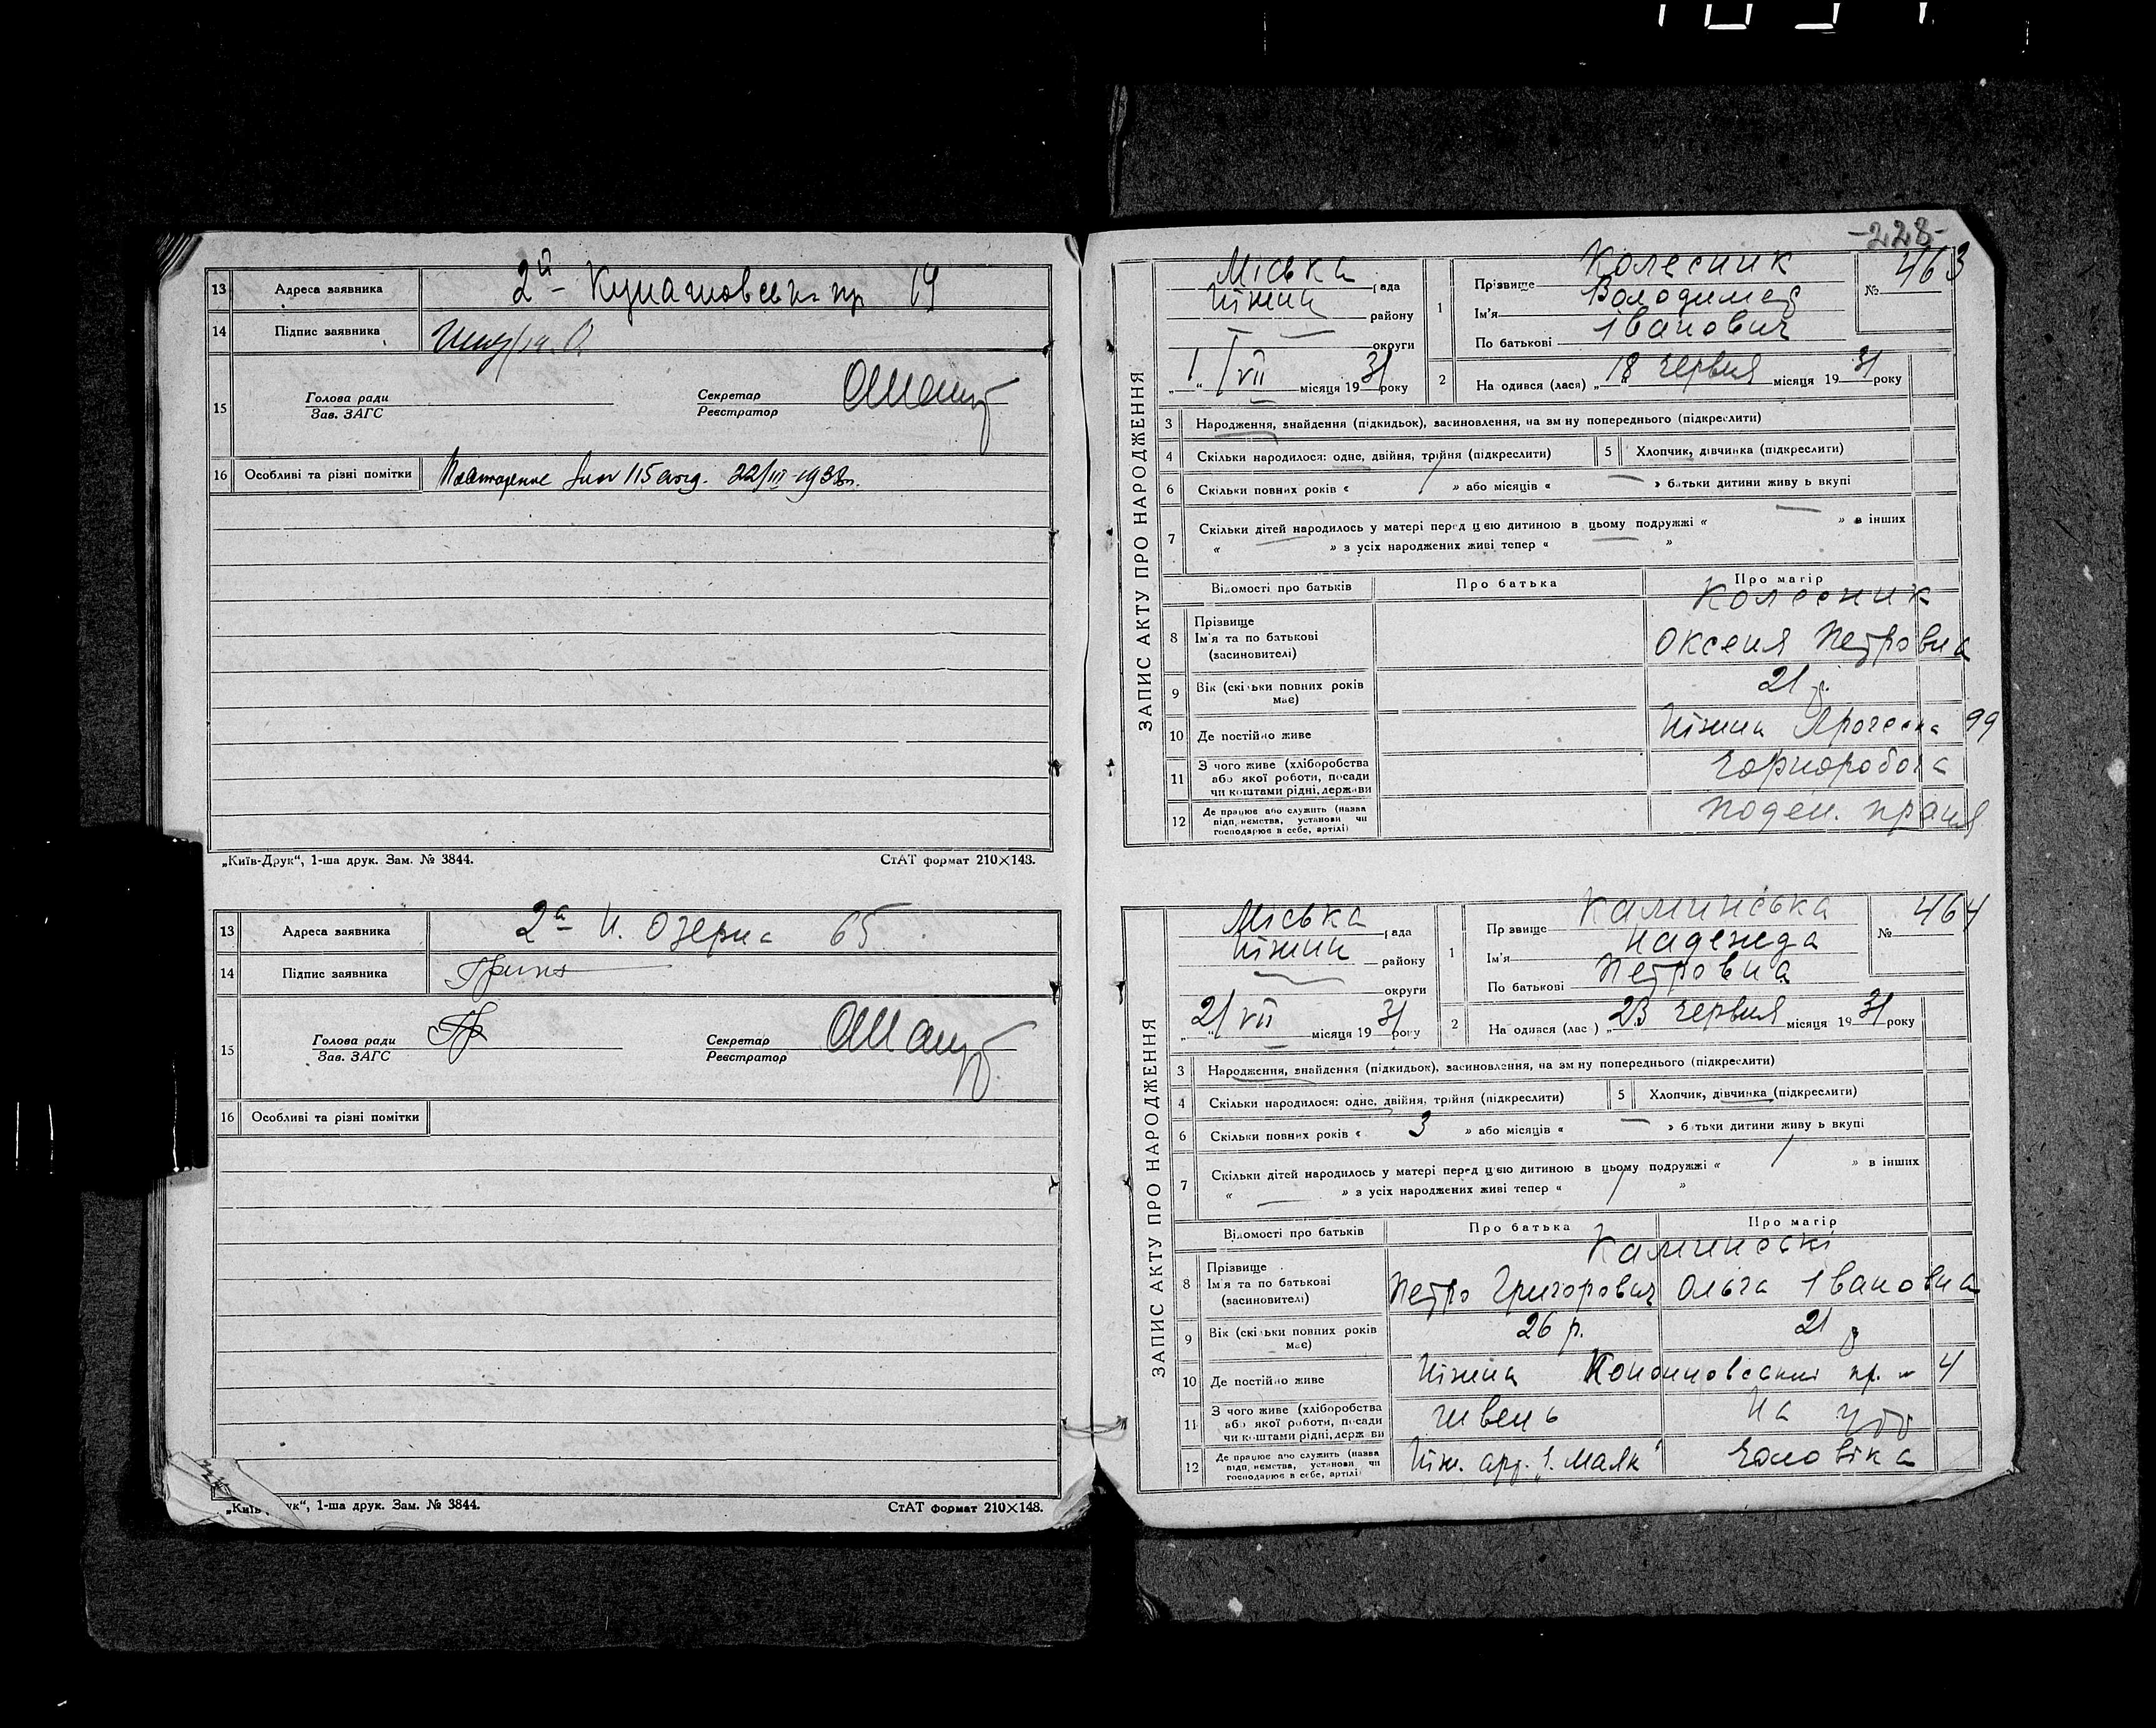 13 Адреса заявника 2й Кунашовськ пр 14
14 Підпис заявника
15 Голова ради
Зав. ЗАГС
Секретар
Реєстратор
16 Особливі та різні помітки 115 22/III-1938
„Київ-Друк“, 1-ша друк. Зам. № 3844. СтАТ формат 210×143.
13 Адреса заявника 2а Н. Озерна 65
14 Підпис заявника
15 Голова ради
Зав. ЗАГС
Секретар
Реєстратор
16 Особливі та різні помітки
„Київ ук“, 1-ша друк. Зам. № 3844. СтАТ формат 210×148.
-228-
ЗАПИС АКТУ ПРО НАРОДЖЕННЯ
Міська рада
Ніжин району
округи
„1“ VII місяця 1931 року
1 Прізвище Колесник
Ім'я Володимер
По батькові Іванович
№ 463
2 На одився (лася) „18 червня місяця 1931 року
3 Народження, знайдення (підкидьок), засиновлення, на зм ну попереднього (підкреслити)
4 Скільки народилося: одне, двійня, трійня (підкреслити) 5 Хлопчик, дівчинка (підкреслити)
6 Скільки повних років « » або місяців « » батьки дитини живу ь вкупі
7 Скільки дітей народилось у матері перед цією дитиною в цьому подружжі « » в інших
« » з усіх народжених живі тепер « »
Відомості про батьків Про батька Про матір
8 Прізвище Колесник
Ім'я та по батькові Оксеня Петровна
(засиновителі)
9 Вік (скільки повних років має) 21 р.
10 Де постійно живе Ніжин 99
11 З чого живе (хліборобства або якої роботи, посади чи коштами рідні, держави Чорноробоча
12 Де працює або служить (назва підприємства, установи чи господарює в себе, артілі) поден. праця
ЗАПИС АКТУ ПРО НАРОДЖЕННЯ
Міська рада
Ніжин району
округи
„2/ VII місяця 1931 року
1 Пр звище Каминська
Ім'я Надежда
По батькові Петровна
№ 464
2 На одився (лас ) „23 червня місяця 1931 року
3 Народження, знайдення (підкидьок), засиновлення, на зм ну попереднього (підкреслити)
4 Скільки народилося: одне, двійня, трійня (підкреслити) 5 Хлопчик, дівчинка (підкреслити)
6 Скільки повних років « 3 » або місяців « » б тьки дитини живу ь вкупі
7 Скільки дітей народилось у матері перед цією дитиною в цьому подружжі « 1 » в інших
« » з усіх народжених живі тепер « 1 »
Відомості про батьків Про батька Про матір
8 Прізвище Каминські
Ім'я та по батькові Петро Григорович Ольга Івановна
(засиновителі)
9 Вік (скільки повних років має) 26 р. 21 р
10 Де постійно живе Ніжин пр. 4
11 З чого живе (хліборобства або якої роботи, посади чи коштами рідні, держ ви швець На утр
12 Де працює або служить (назва підприємства, установи чи господарює в себе, артілі) Ніж. арт. „Маяк“ чоловіка